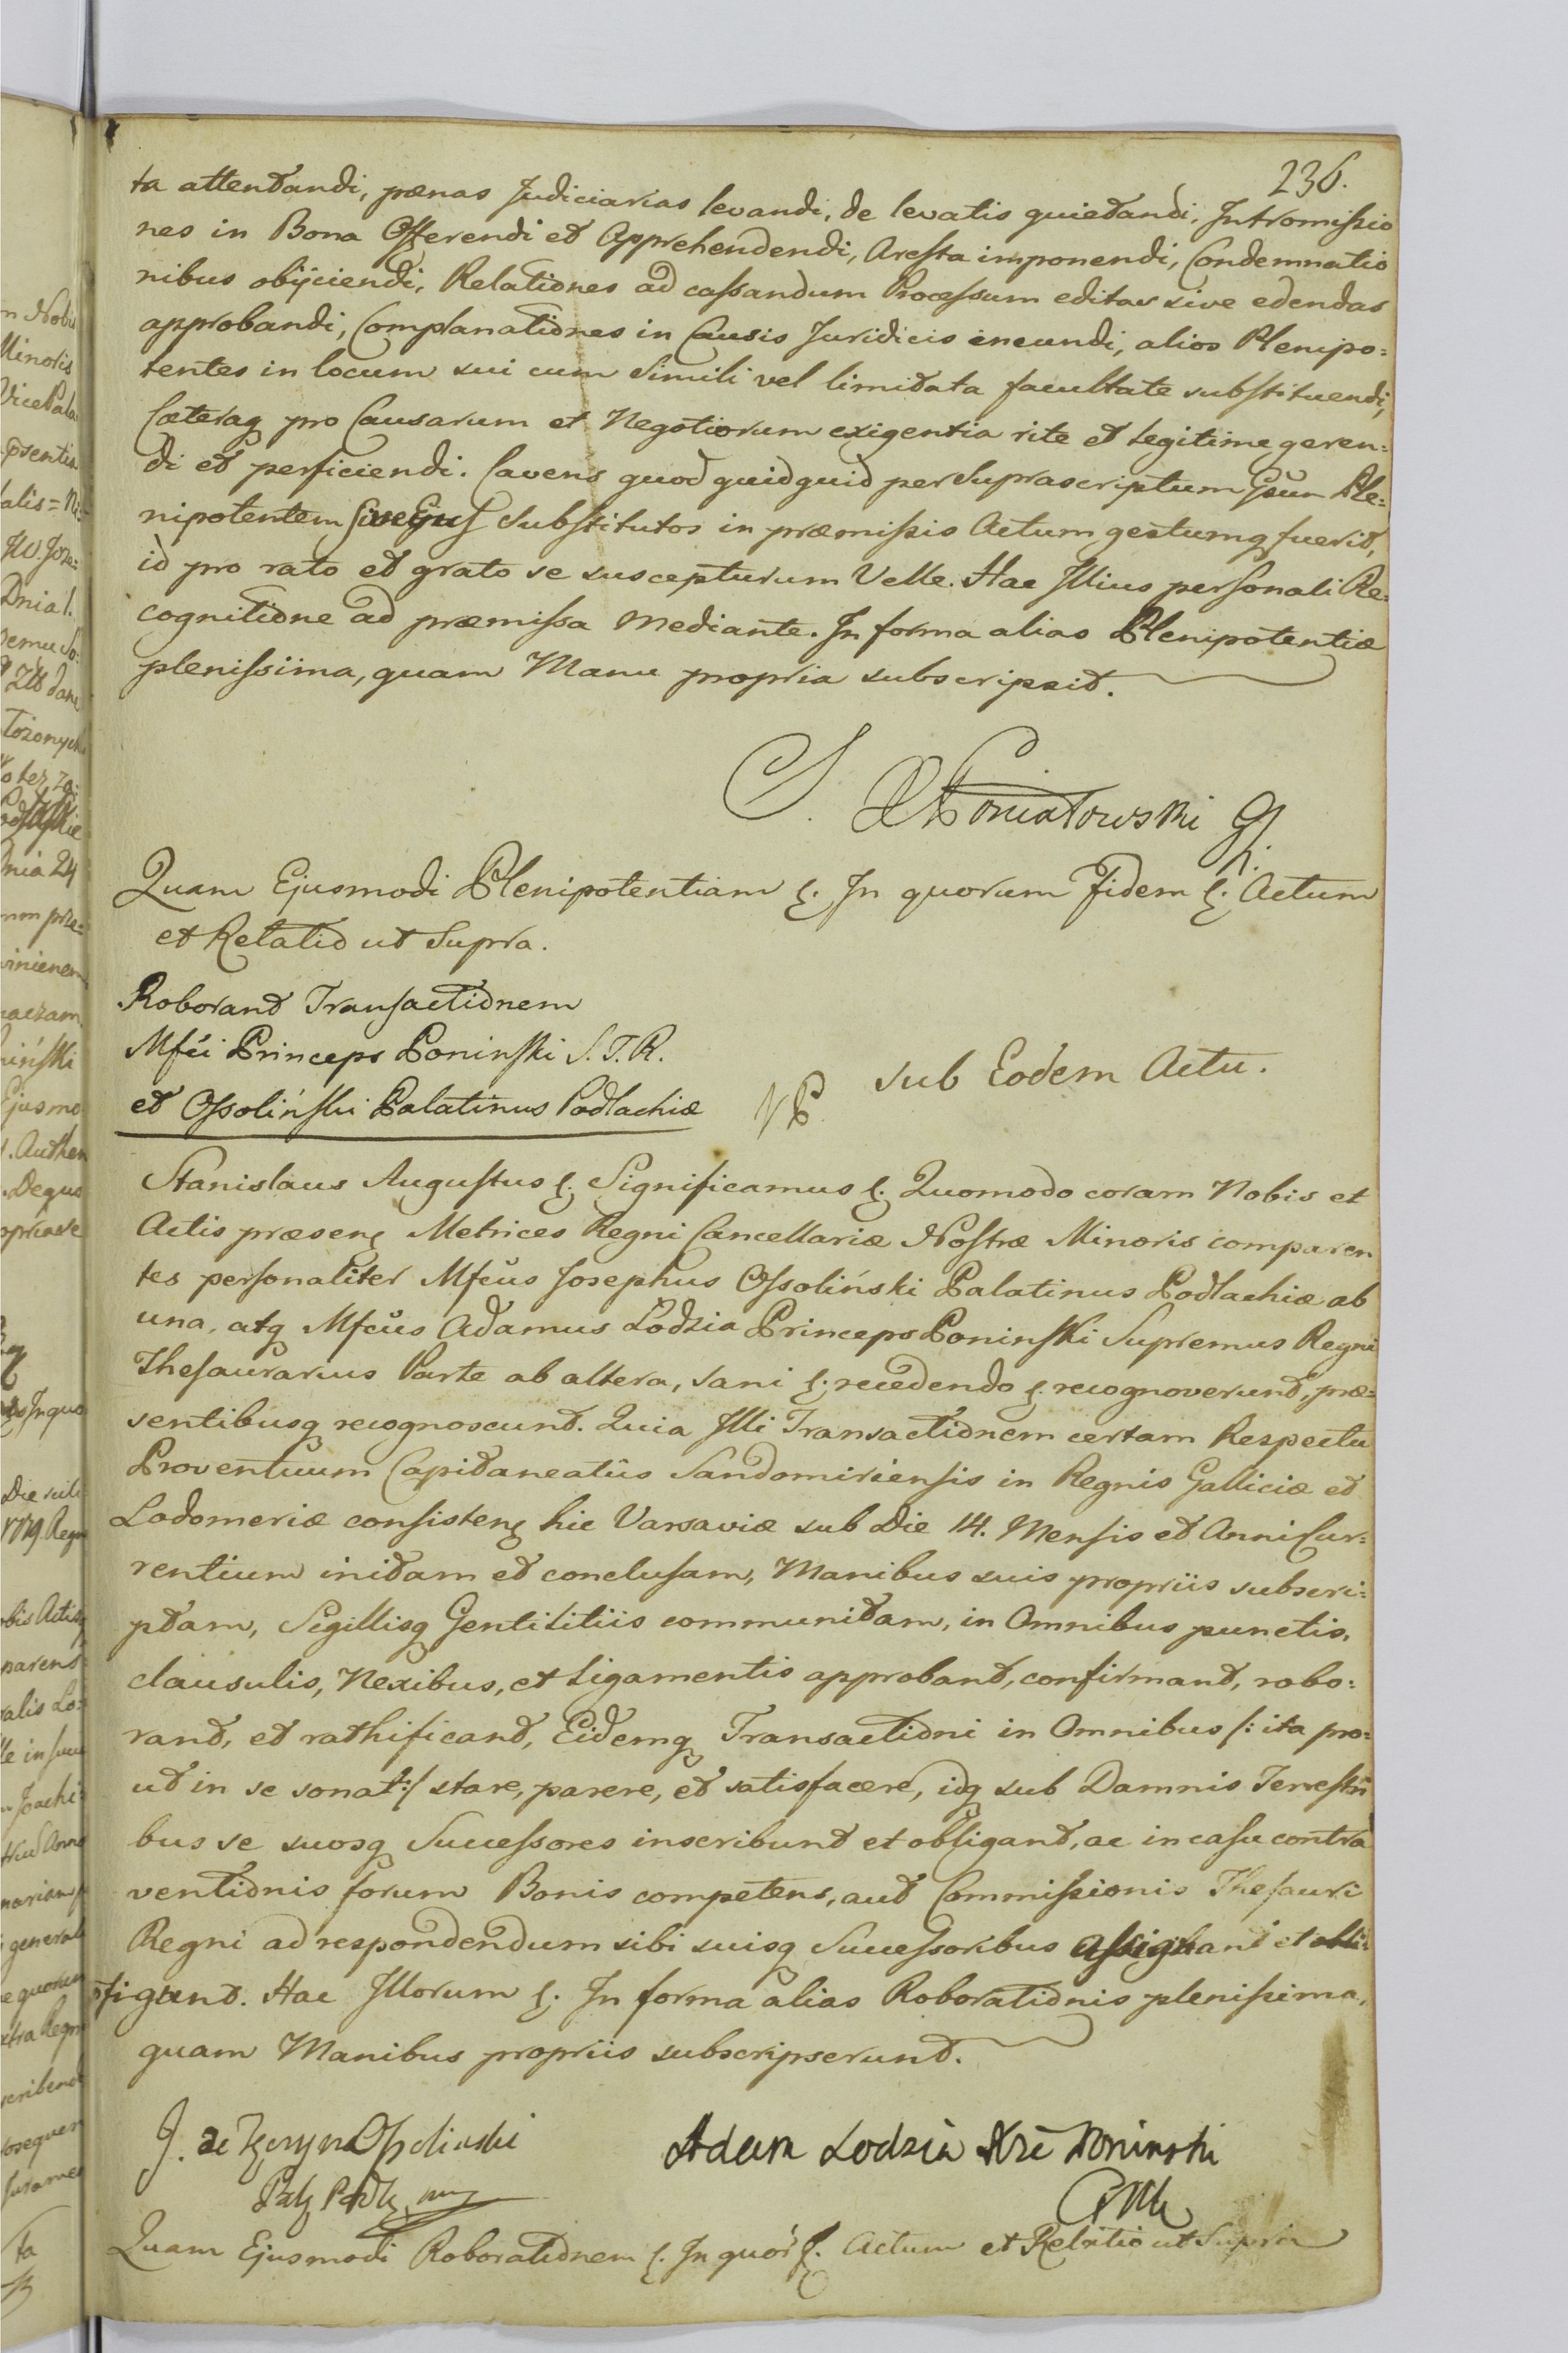 236.
ta attentandi, pœnas Judiciarias levandi, de levatis quietandi, Intromissio
nes in Bona Offerendi et Apprehendendi, Aresta imponendi, Condemnatio
nibus obijciendi, Relationes ad cassandum Processum editas sive edendas
approbandi, Complanationes in Causis Juridicis ineundi, alios Plenipo=
tentes in locum sui cum Simili vel limitata facultate substituendi,
Cæteraq pro Causarum et Negotiorum exigentia rite et legitime geren=
di et perficiendi. Cavens quod quidquid per Suprascriptum Gsum Ple=
nipotentem sive Ejus Substitutos in præmissis Actum gestumq fuerit,
id pro rato et grato se suscepturum Velle. Hac Illius personali Re=
cognitione ad præmissa Mediante. In forma alias Plenipotentiæ
plenissima, quam Manu propria subscripsit.
S. X Poniatowski
Quam Ejusmodi Plenipotentiam ę. In quorum Fidem ę. Actum
et Relatio ut Supra.
Roborant Transactionem
Mfci Princeps Poninski S. T. R.
et Ossoliński Palatinus Podlachiæ
NP. sub Eodem Actu.
Stanislaus Augustus ę. Significamus ę. Quomodo coram Nobis et
Actis præsenę Metrices Regni Cancellariæ Nostræ Minoris comparen
tes personaliter Mfcus Josephus Ossoliński Palatinus Podlachiæ ab
una, atq Mfcus Adamus Lodzia Princeps Poninski Supremus Regni
Thesaurarius Parte ab altera, sani ę. recedendo ę. recognoverunt, præ=
sentibusq recognoscunt. Quia Illi Transactionem certam Respectu
Proventuum Capitaneatûs Sandomiriensis in Regnis Galliciæ et
Lodomeriæ consistenę hic Varsaviæ sub Die 14. Mensis et Anni Cur=
rentium initam et conclusam, Manibus suis propriis subscri=
ptam, Sigillisq Gentilitiis communitam, in Omnibus punctis,
clausulis, Nexibus, et Ligamentis approbant, confirmant, robo=
rant, et rathificant, Eidemq Transactioni in Omnibus /: ita pro=
ut in se sonat :/ stare, parere, et satisfacere, idq sub Damnis Terrestri
bus se suosq Successores inscribunt et obligant, ac in casu contra
ventionis forum Bonis competens, aut Commissionis Thesauri
Regni ad respondendum sibi suisq Successoribus assignant et
figunt. Hac Illorum ę. In forma alias Roborationis plenissima,
quam Manibus propriis subscripserunt.
J. de Tęczyn Ossoliński
Adam Lodzia Xże Poninski
Quam Ejusmodi Roborationem ę. In quor ę. Actum et Relatio ut Supra